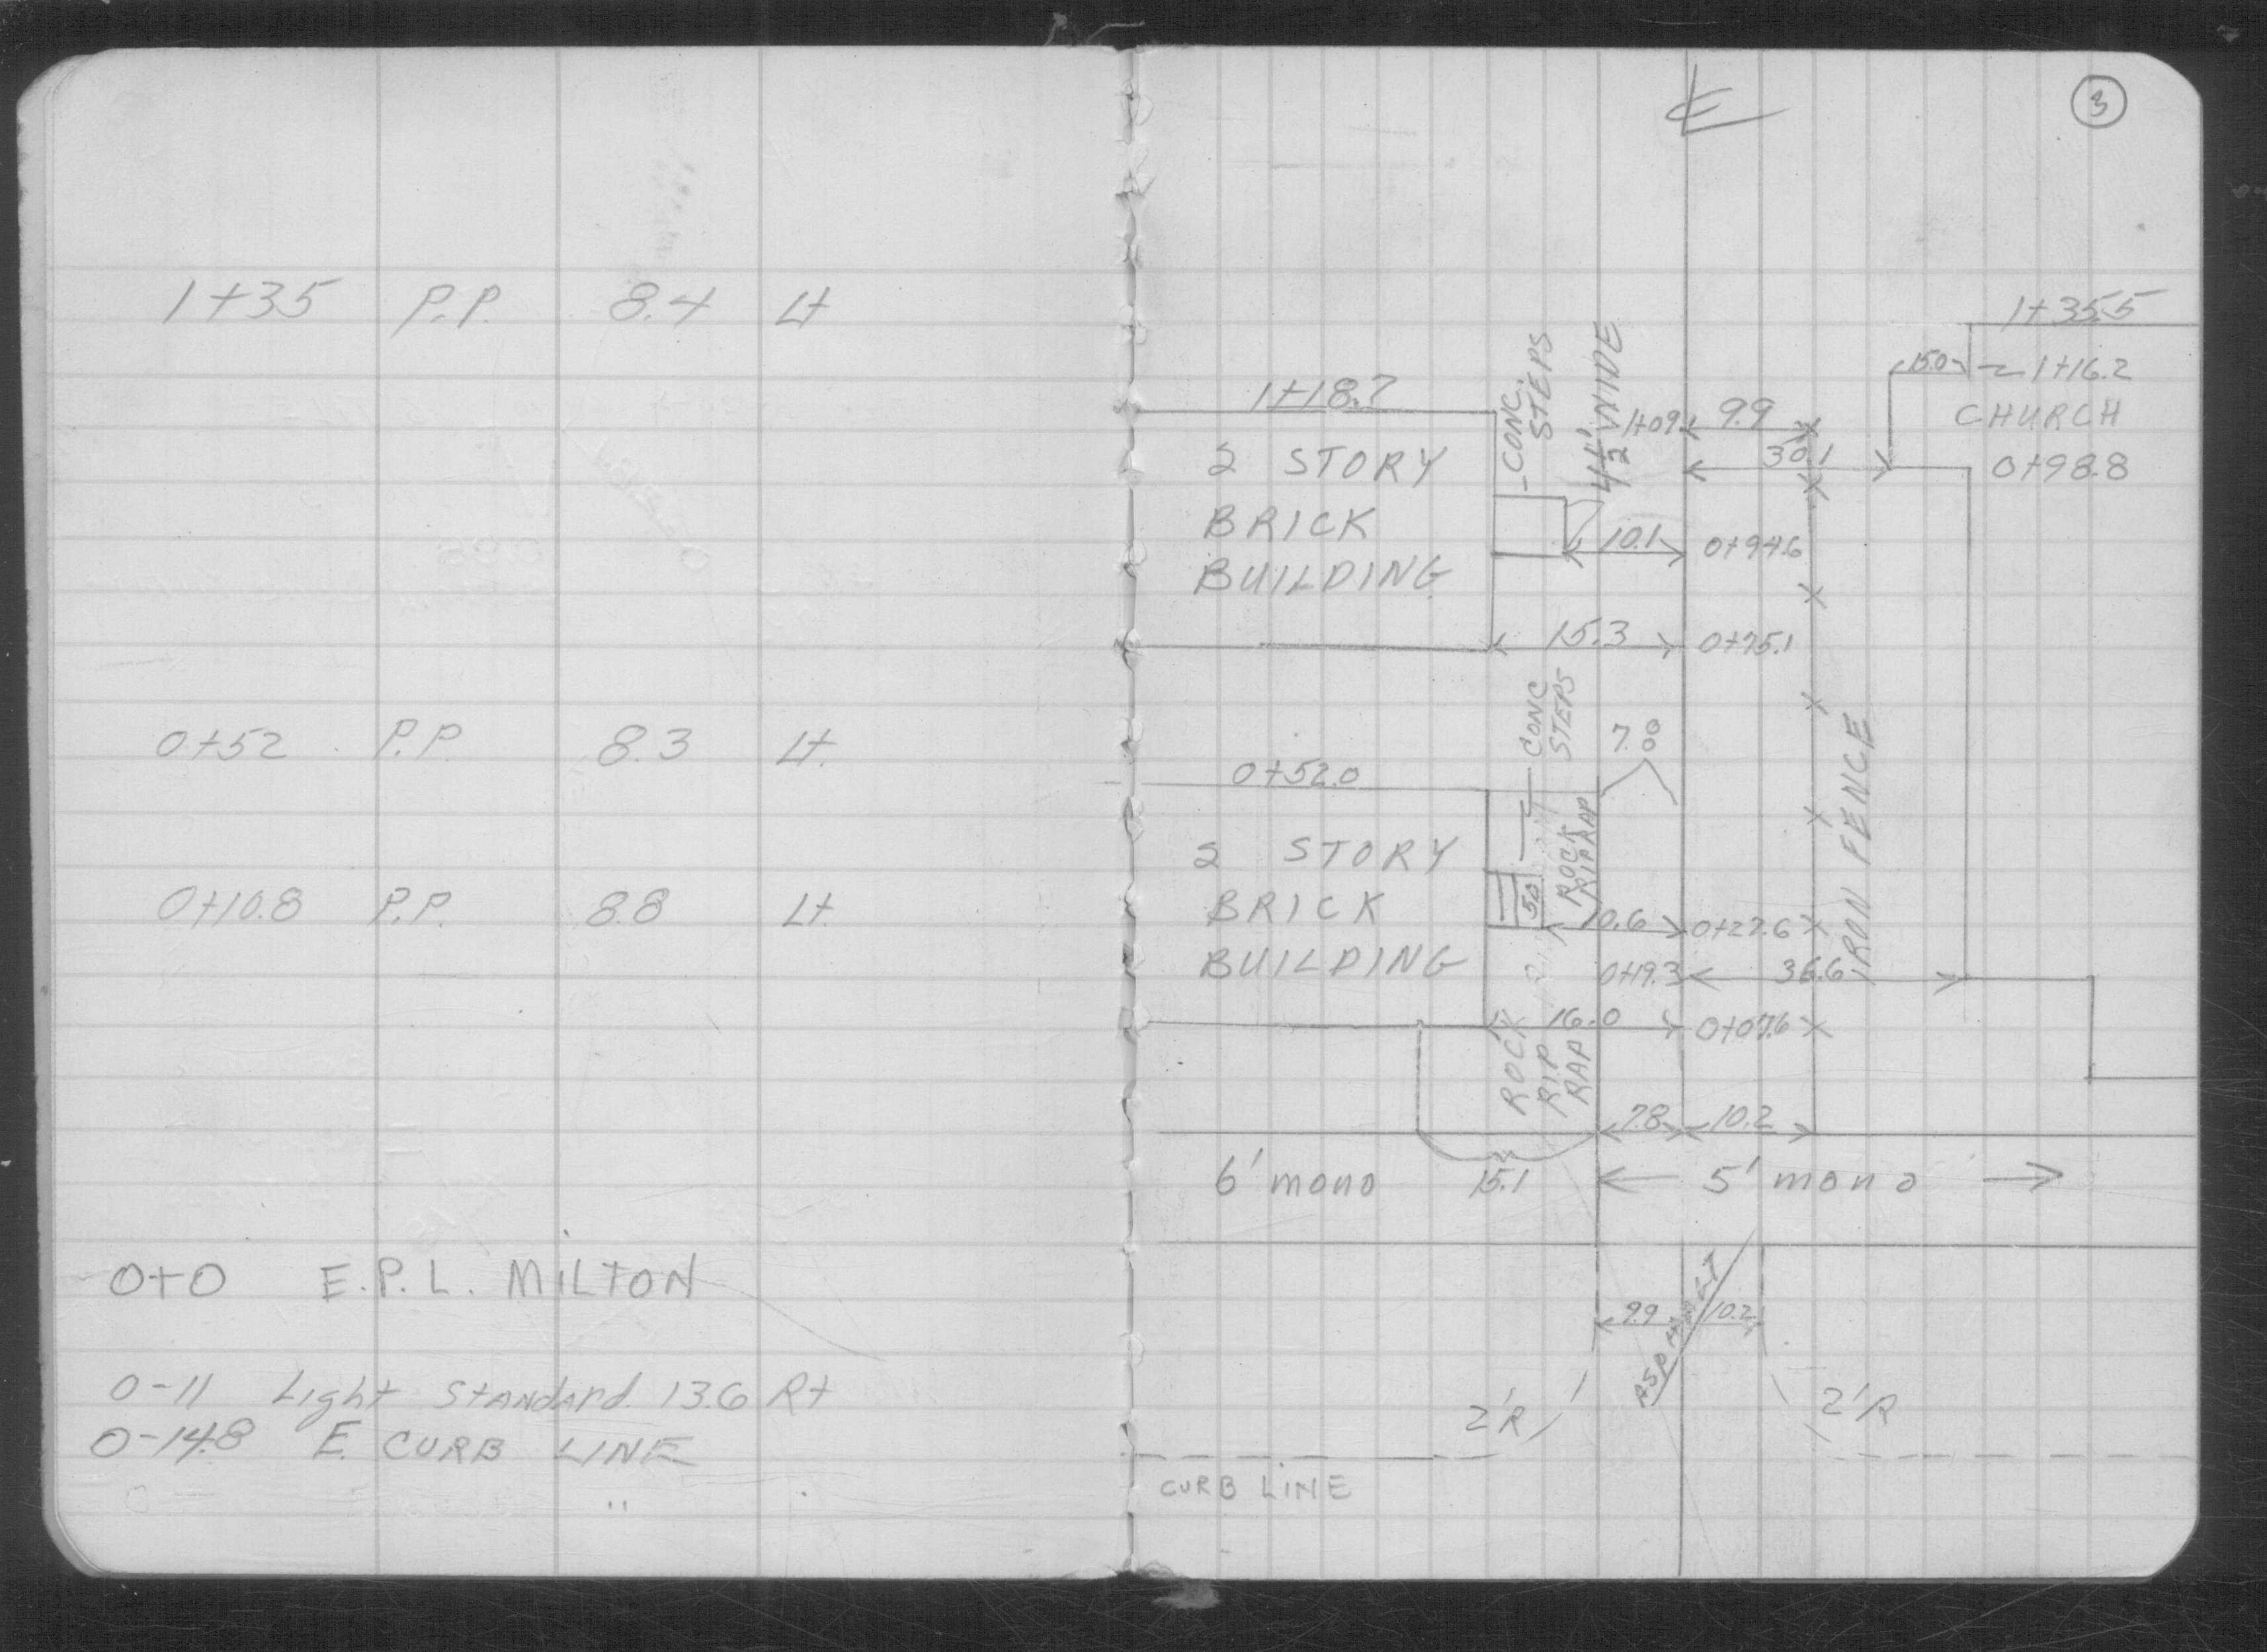 1+35 P.P. 8.4 Lt
0+52 P.P. 8.3 Lt.
0+10.8 P.P. 8.8 Lt.
0+0 E.P.L. MILTON
0-11 Light Standard 13.6 Rt
0-14.8 E. CURB LINE
"
3
℄
1+35.5
15.0 1+16.2
CHURCH
0+98.8
1+18.7
CONC. STEPS
4½' WIDE
1+09 9.9
30.1
2 STORY
BRICK
BUILDING
10.1 0+94.6
15.3 0+75.1
CONC STEPS
7.8
0+52.0
2 STORY
BRICK
BUILDING
5.0
ROCK RIPRAP
10.6 0+27.6
IRON FENCE
0+19.3 36.6
16.0 0+07.6
ROCK RIP RAP
7.8 10.2
6' mono 15.1 5' mono
9.9 10.2
2'R 2'R
CURB LINE